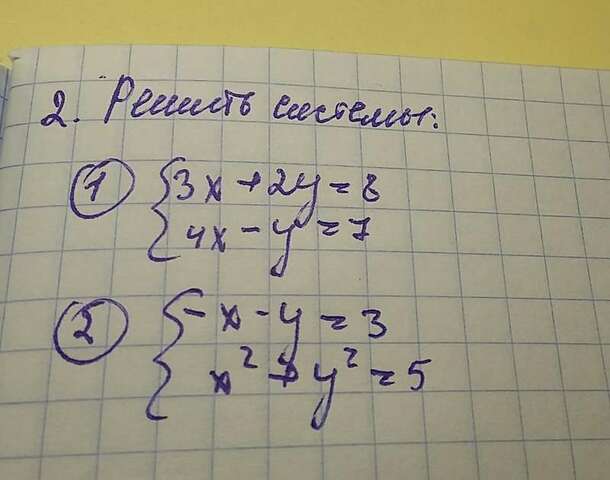 2. Решить системы:
① { 3x + 2y = 8
4x - y = 7
② { -x - y = 3
x² + y² = 5